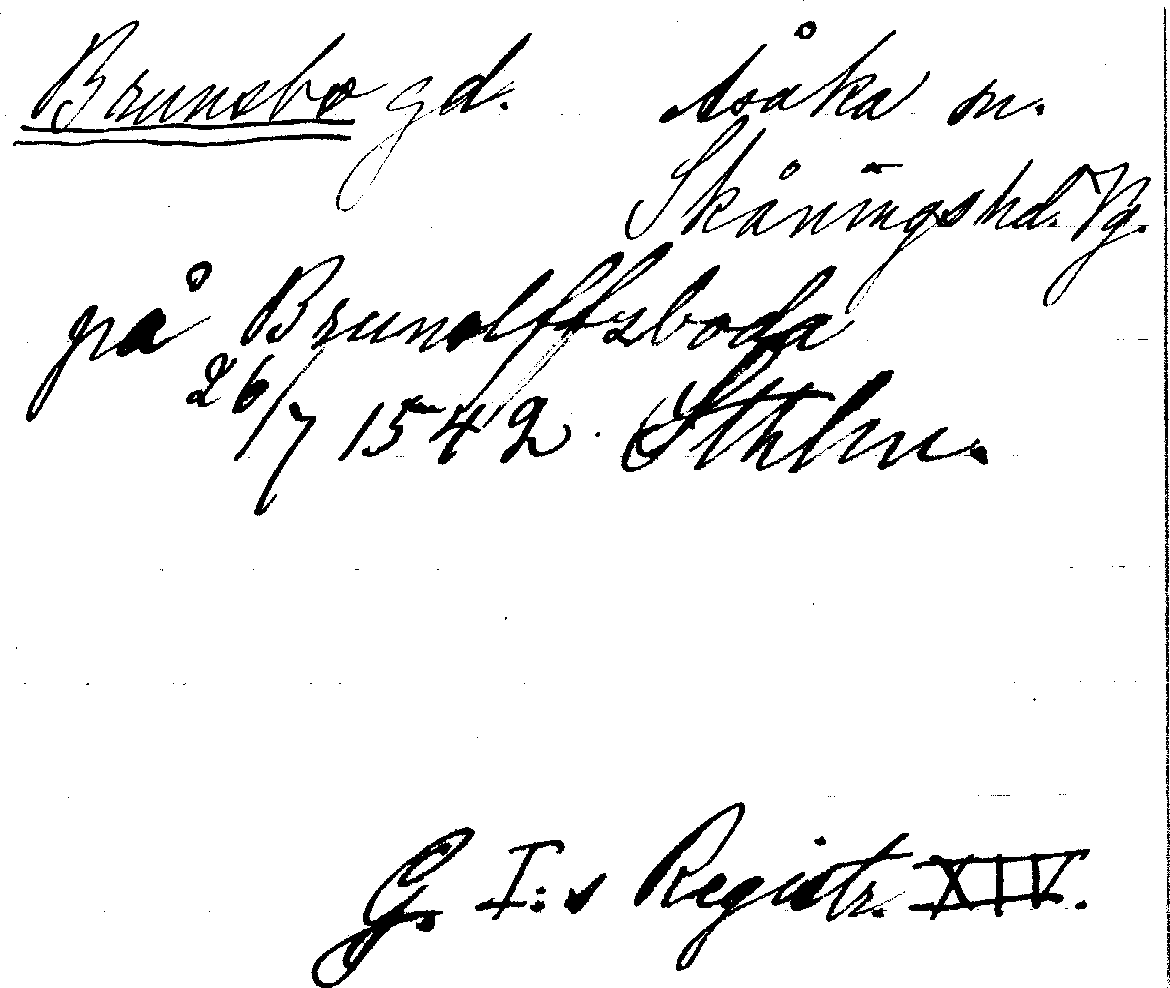 Brunsbo gd. Asåka sn.
Skånings hd. Vg.
på Brunolffzboda
26/7 1542 Sthlm.
G. I:s Registr. XIV.